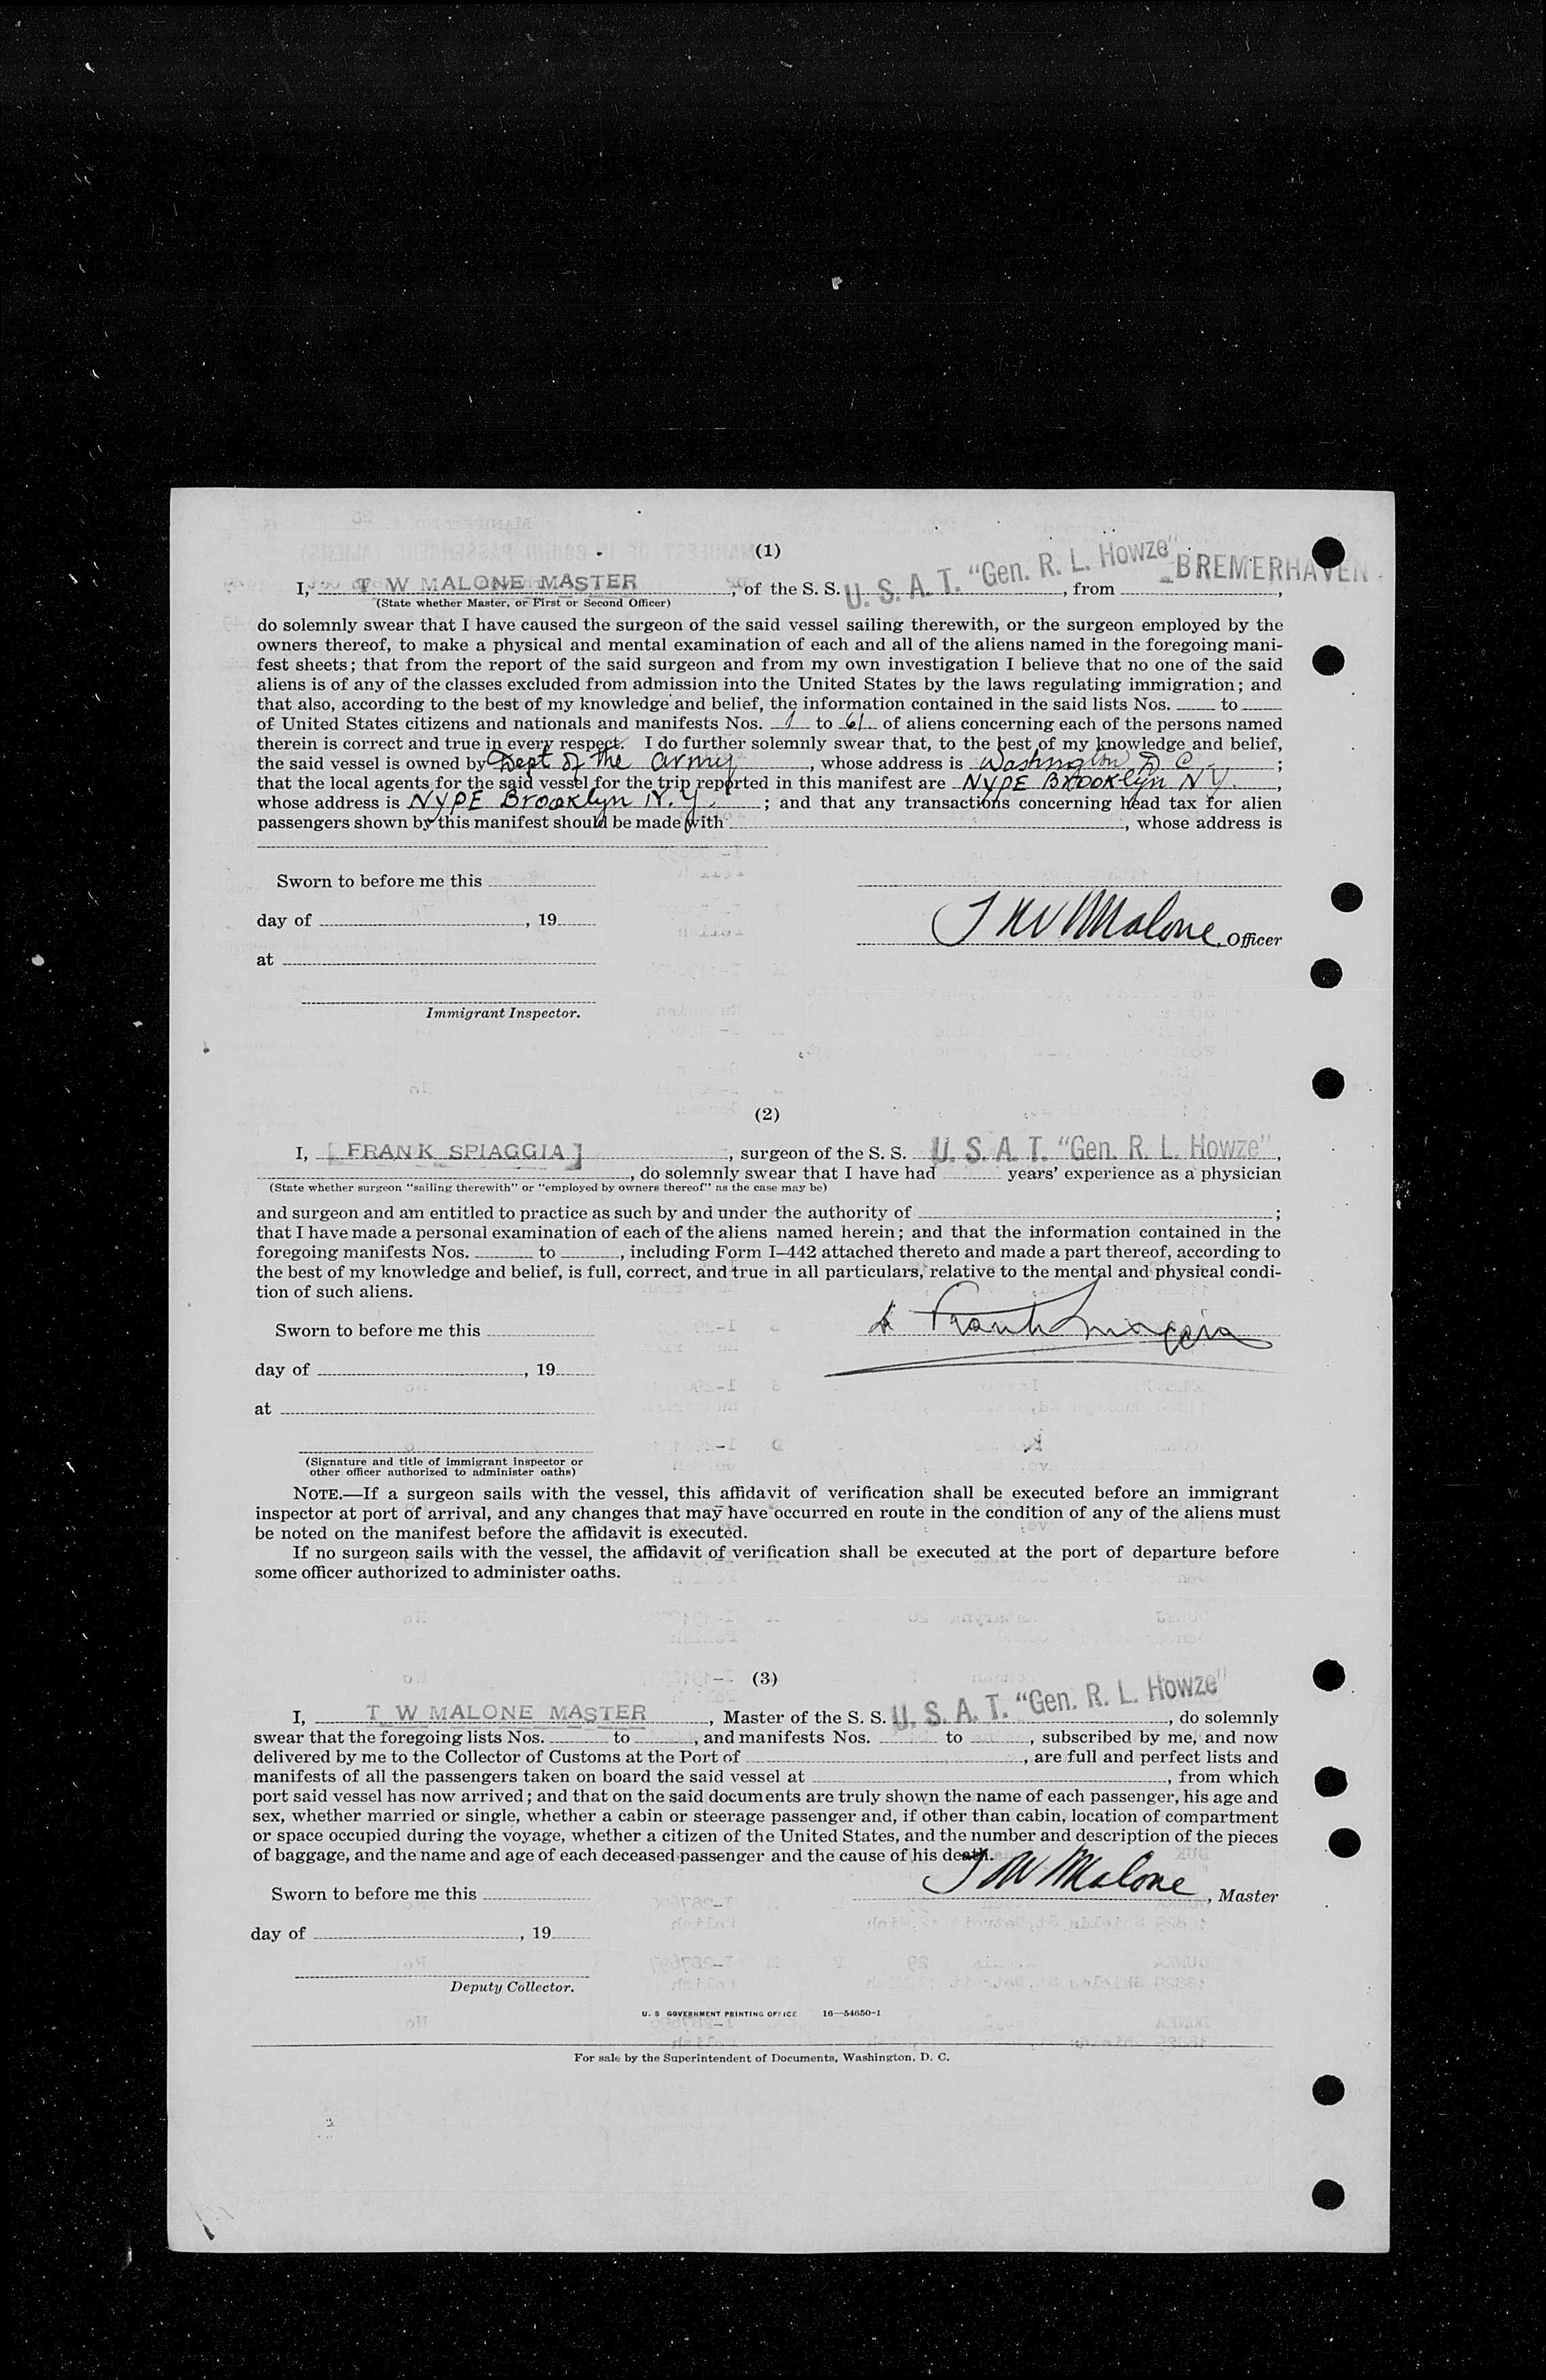 (1)
I, T W MALONE MASTER, of the S. S. U. S. A. T. "Gen. R. L. Howze", from BREMERHAVEN,
(State whether Master, or First or Second Officer)
do solemnly swear that I have caused the surgeon of the said vessel sailing therewith, or the surgeon employed by the
owners thereof, to make a physical and mental examination of each and all of the aliens named in the foregoing mani-
fest sheets; that from the report of the said surgeon and from my own investigation I believe that no one of the said
aliens is of any of the classes excluded from admission into the United States by the laws regulating immigration; and
that also, according to the best of my knowledge and belief, the information contained in the said lists Nos. to
of United States citizens and nationals and manifests Nos. 1 to 61 of aliens concerning each of the persons named
therein is correct and true in every respect. I do further solemnly swear that, to the best of my knowledge and belief,
the said vessel is owned by Dept of the Army, whose address is Washington D C;
that the local agents for the said vessel for the trip reported in this manifest are NYPE Brooklyn N Y.,
whose address is NYPE Brooklyn N. Y.; and that any transactions concerning head tax for alien
passengers shown by this manifest should be made with , whose address is
Sworn to before me this
day of , 19
T W Malone, Officer
at
Immigrant Inspector.
(2)
I, [FRANK SPIAGGIA], surgeon of the S. S. U. S. A. T. "Gen. R. L. Howze",
, do solemnly swear that I have had years' experience as a physician
(State whether surgeon "sailing therewith" or "employed by owners thereof" as the case may be)
and surgeon and am entitled to practice as such by and under the authority of ;
that I have made a personal examination of each of the aliens named herein; and that the information contained in the
foregoing manifests Nos. to , including Form I–442 attached thereto and made a part thereof, according to
the best of my knowledge and belief, is full, correct, and true in all particulars, relative to the mental and physical condi-
tion of such aliens.
Frank Spiaggia
Sworn to before me this
day of , 19
at
(Signature and title of immigrant inspector or
other officer authorized to administer oaths)
NOTE.—If a surgeon sails with the vessel, this affidavit of verification shall be executed before an immigrant
inspector at port of arrival, and any changes that may have occurred en route in the condition of any of the aliens must
be noted on the manifest before the affidavit is executed.
If no surgeon sails with the vessel, the affidavit of verification shall be executed at the port of departure before
some officer authorized to administer oaths.
(3)
I, T W MALONE MASTER, Master of the S. S. U. S. A. T. "Gen. R. L. Howze", do solemnly
swear that the foregoing lists Nos. to , and manifests Nos. to , subscribed by me, and now
delivered by me to the Collector of Customs at the Port of , are full and perfect lists and
manifests of all the passengers taken on board the said vessel at , from which
port said vessel has now arrived; and that on the said documents are truly shown the name of each passenger, his age and
sex, whether married or single, whether a cabin or steerage passenger and, if other than cabin, location of compartment
or space occupied during the voyage, whether a citizen of the United States, and the number and description of the pieces
of baggage, and the name and age of each deceased passenger and the cause of his death.
Sworn to before me this
T W Malone, Master
day of , 19
Deputy Collector.
U. S GOVERNMENT PRINTING OFFICE 16—54650-1
For sale by the Superintendent of Documents, Washington, D. C.